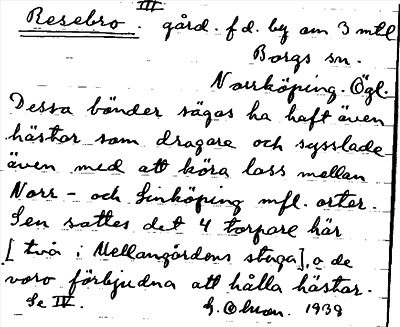 III
Resebro. gård. f.d. by om 3 mtl
Borgs sn.
Norrköping. Ögl.
Dessa bönder sägas ha haft även
hästar som dragare och sysslade
även med att köra lass mellan
Norr- och Linköping mfl. orter.
Sen sattes det 4 torpare här
[två i Mellangårdens stuga], o de
voro förbjudna att hålla hästar.
Se IV. G. Olsson. 1939